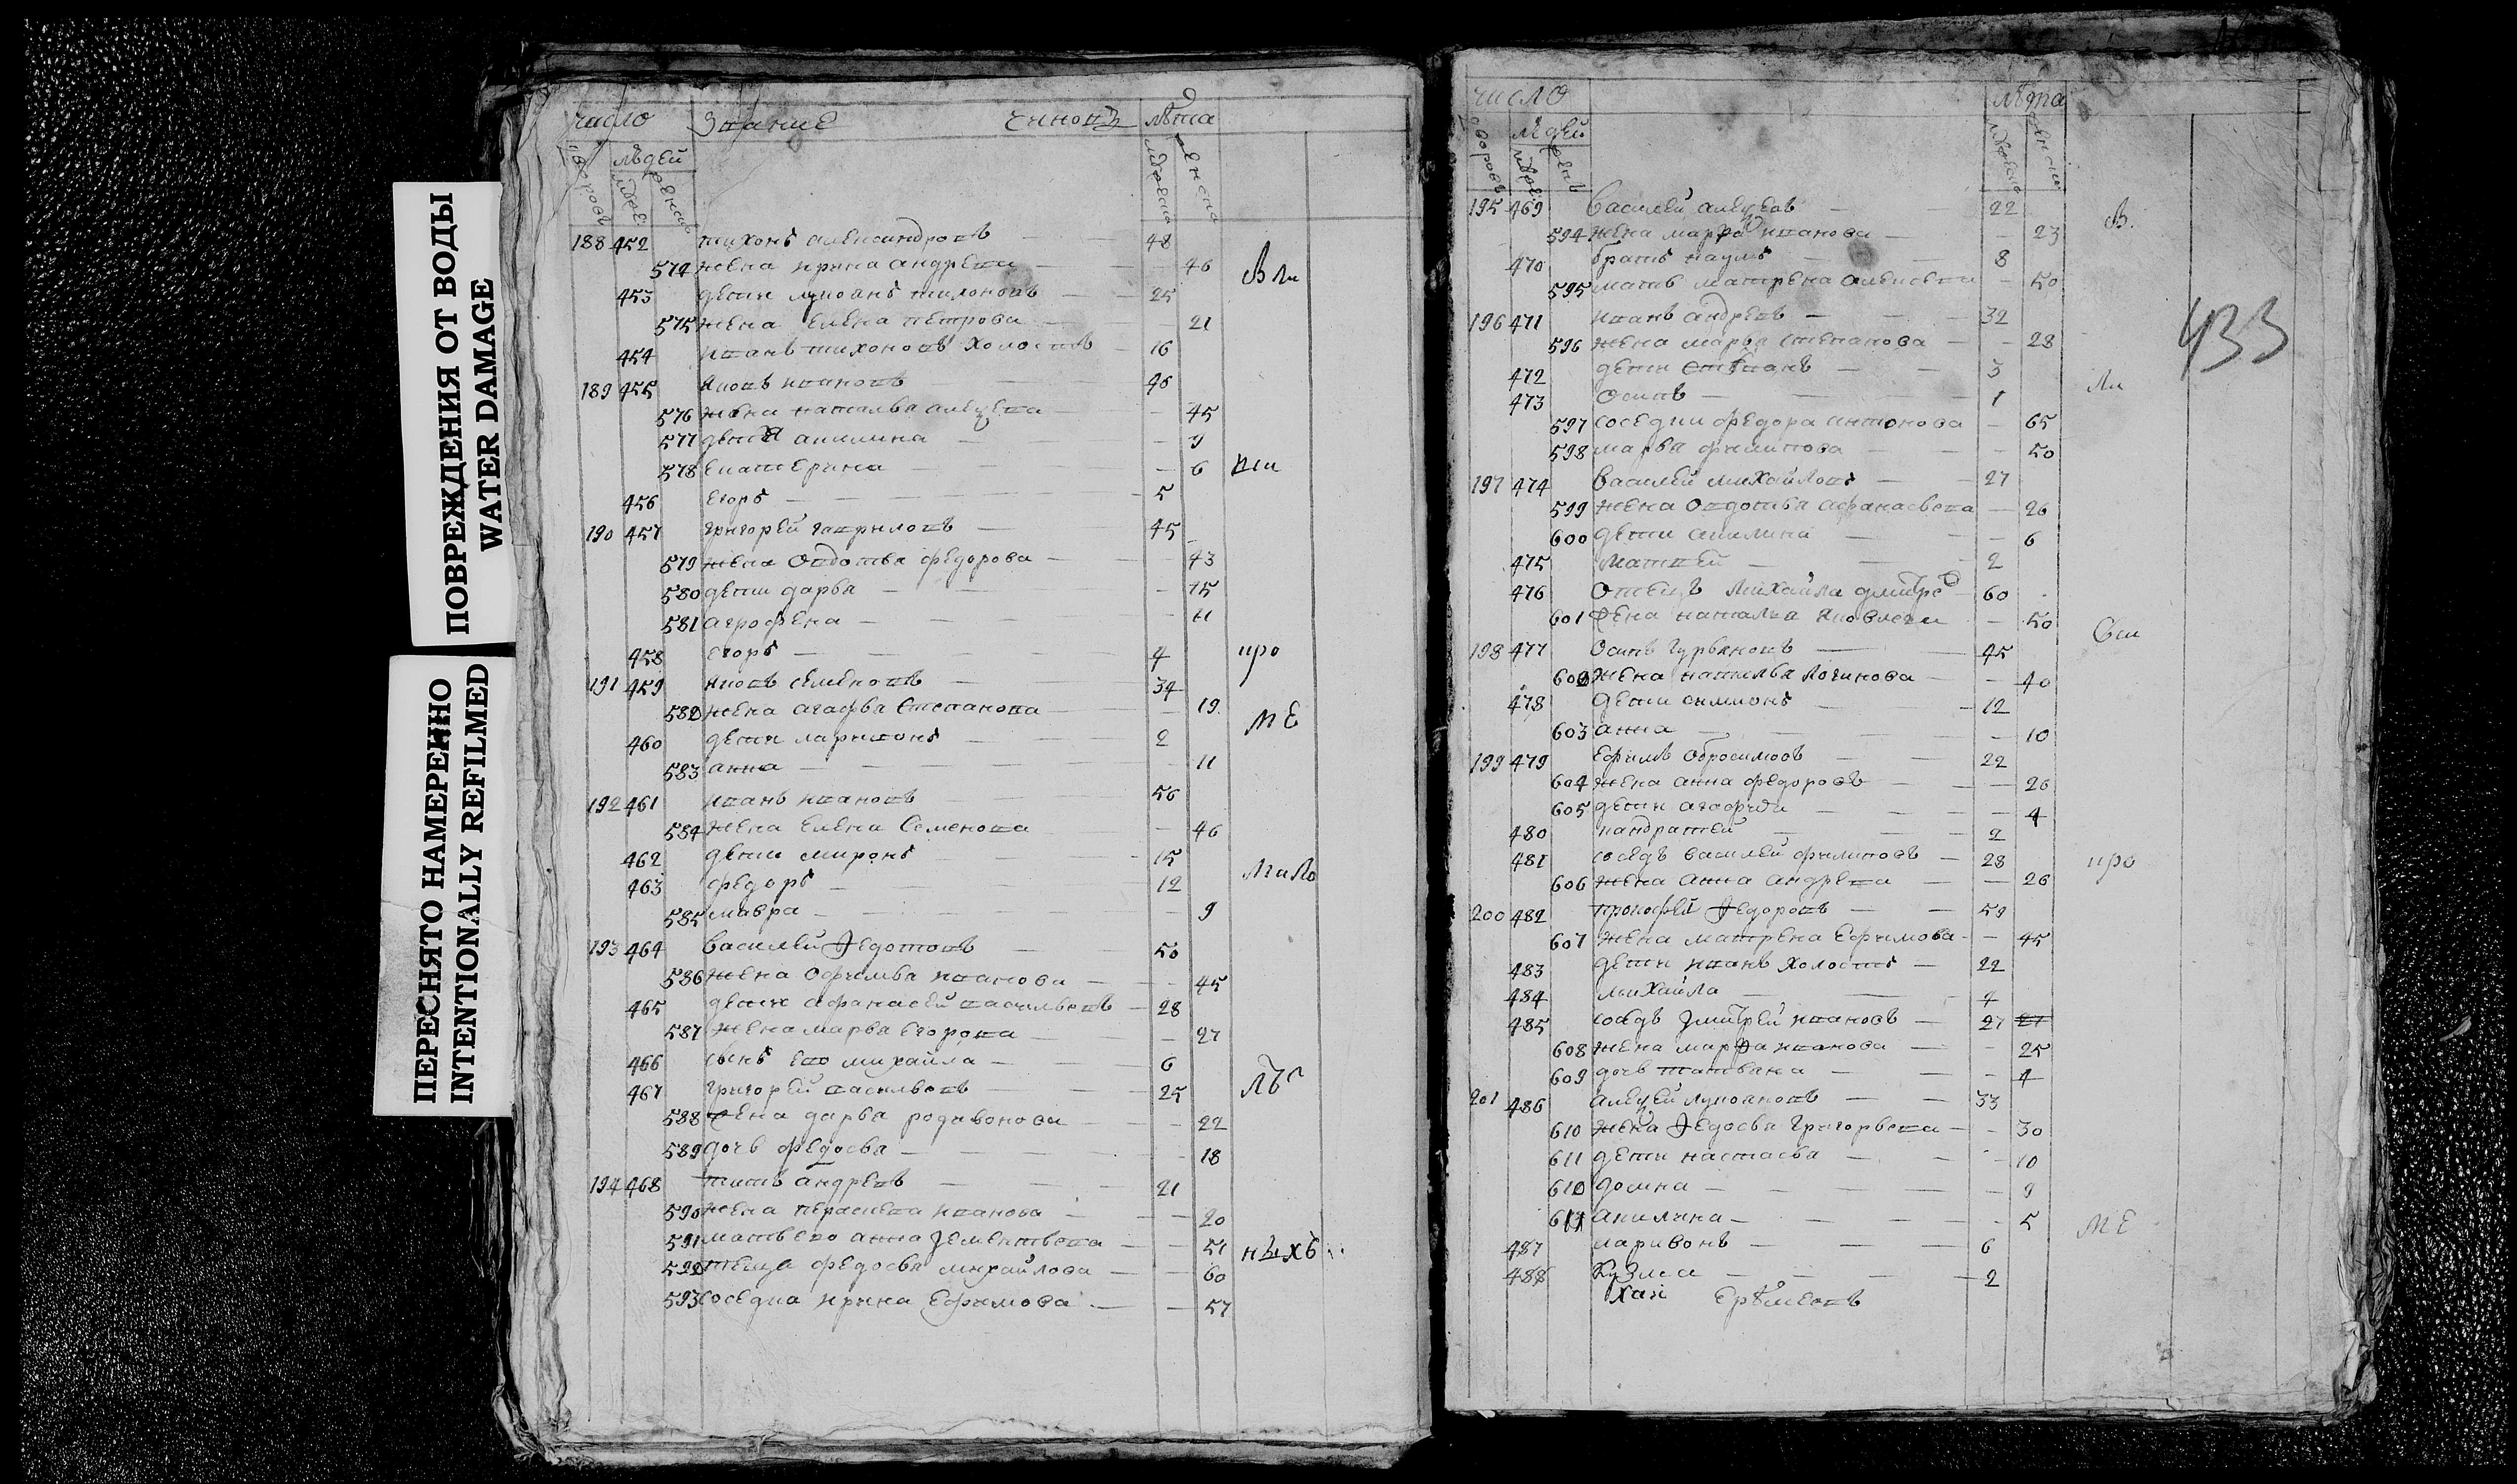 ПОВРЕЖДЕНИЯ ОТ ВОДЫ
WATER DAMAGE
ПЕРЕСНЯТО НАМЕРЕННО
INTENTIONALLY REFILMED
число звание чиновъ лѣта
людей
188 452 тихонъ александровъ 48
574 жена ирина андреева 46
453 дети лукоянъ тихоновъ 25
575 жена елена петрова 21
454 иванъ тихоновъ холостъ 16
189 455 яковъ ивановъ 46
576 жена наталья алеѯева 45
577 дети акилина 9
578 екатерина 6
456 егоръ 5
190 457 григорей гавриловъ 45
579 жена овдотья федорова 43
580 дети дарья 15
581 агрофена 11
458 егоръ 4
191 459 яковъ семеновъ 34
582 жена агафья степанова 19
460 дети ларивонъ 2
583 анна 11
192 461 иванъ ивановъ 56
584 жена елена семенова 46
462 дети миронъ 15
463 федоръ 12
585 мавра 9
193 464 василей Ѳедотовъ 50
586 жена офимья иванова 45
465 дети афанасей васильевъ 28
587 жена марья егорова 27
466 сынъ ево михайла 6
467 григорей васильевъ 25
588 жена дарья родивонова 22
589 дочь федосья 18
194 468 титъ андреевъ 21
590 жена парасковья иванова 20
591 мать ево анна дементьева 51
592 теща федосья михайлова 60
593 соседка ирина ефимова 57
Вли
про
МЕ
мило
ныхъ
число лѣта
людей
195 469 василей алеѯеевъ 22
594 жена марфа иванова 23
470 братъ наумъ 8
595 мать матрена алексева 50
196 471 иванъ андреевъ 32
596 жена марья степанова 28
472 дети степанъ 3
473 осипъ 1
597 соседки федора антонова 65
598 марья филипова 50
197 474 василей михайловъ 27
599 жена овдотья афанасьева 26
600 дети акилина 6
475 матвей 2
476 отецъ михайла дмитре 60
601 жена наталья яковлева 50
198 477 осипъ гурьяновъ 45
602 жена наталья логинова 40
478 дети симионъ 12
603 анна 10
199 479 ефимъ обросимовъ 22
604 жена анна федоровъ 26
605 дети агафия 4
480 кандратей 2
481 соседъ василей филиповъ 28
606 жена анна андреева 26
200 482 прокофей Ѳедоровъ 59
607 жена матрена ефимова 45
483 дети иванъ холостъ 22
484 михайла 4
485 соседъ дмитрей ивановъ 27 27
608 жена марфа иванова 25
609 дочь татьяна 4
201 486 алеѯей лукояновъ 33
610 жена Ѳедосья григорьева 30
611 дети настасья 10
612 домна 9
613 акилина 5
487 ларивонъ 6
488 кузма 2
хаи еремеевъ
В
Ли
про
МЕ
433